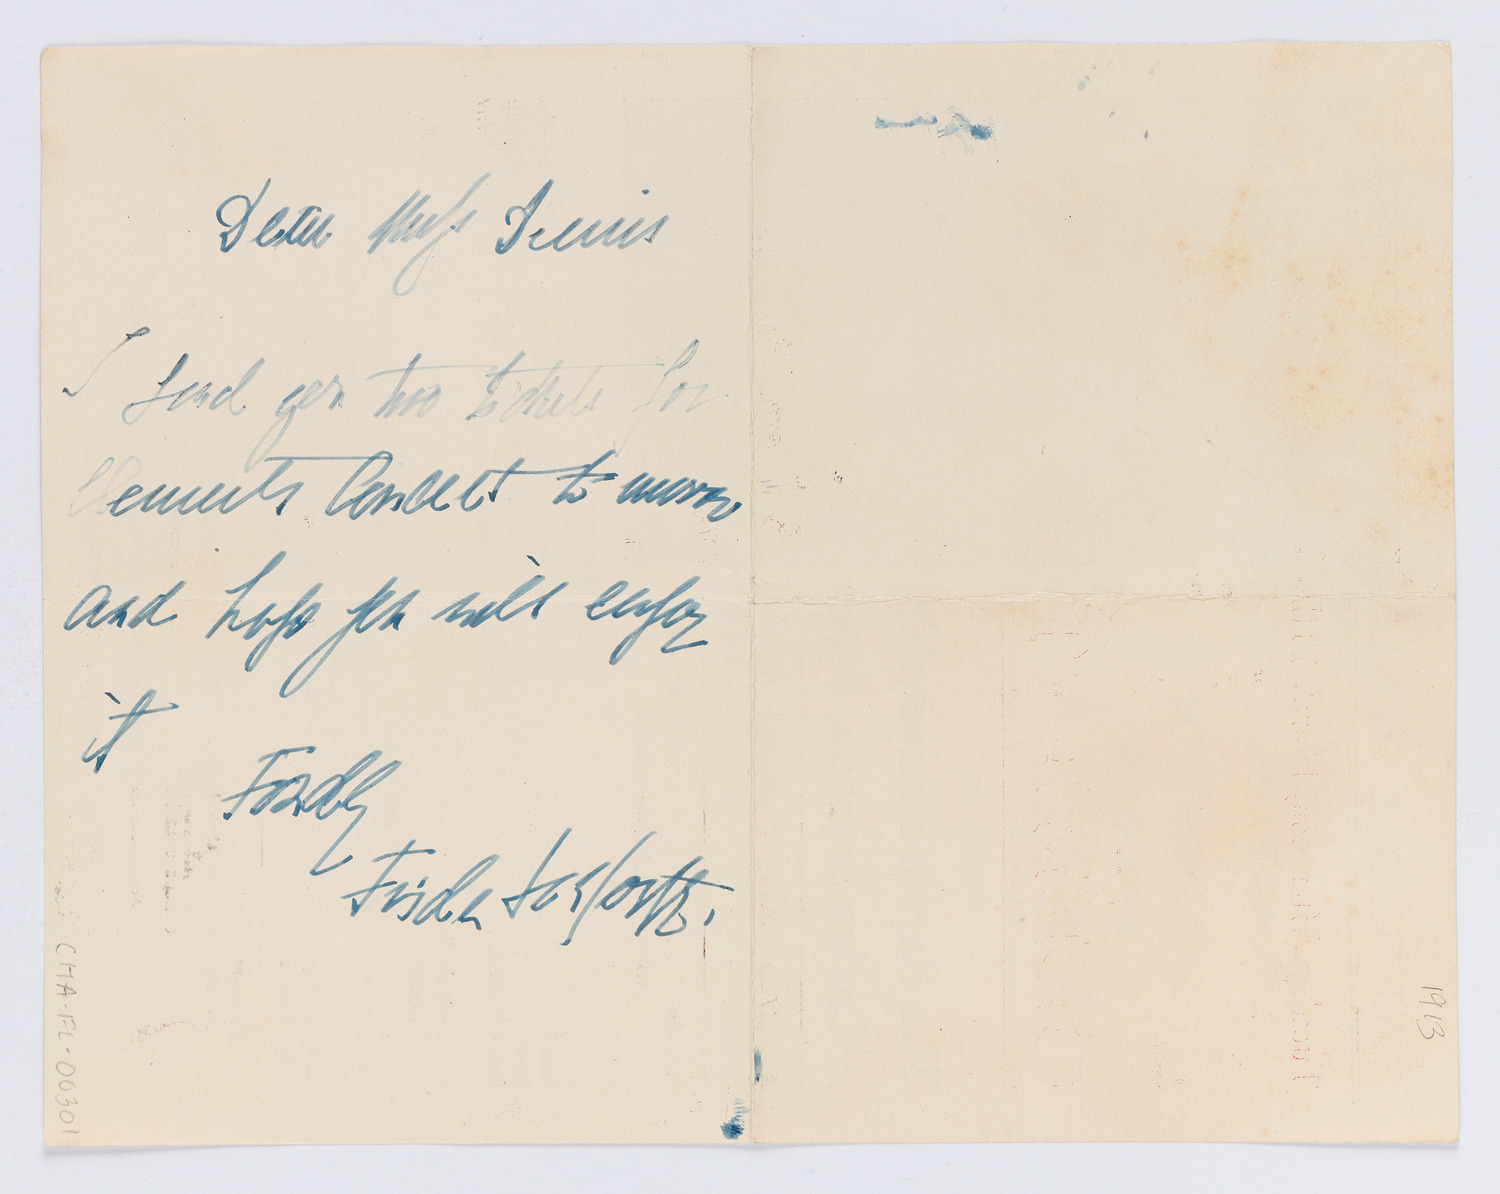 Dear Miss Dennis
I send you two tickets for
Clements Concert to morrow
and hope you will enjoy
it
Fondly
Frida
CHA-FL-00301
1913